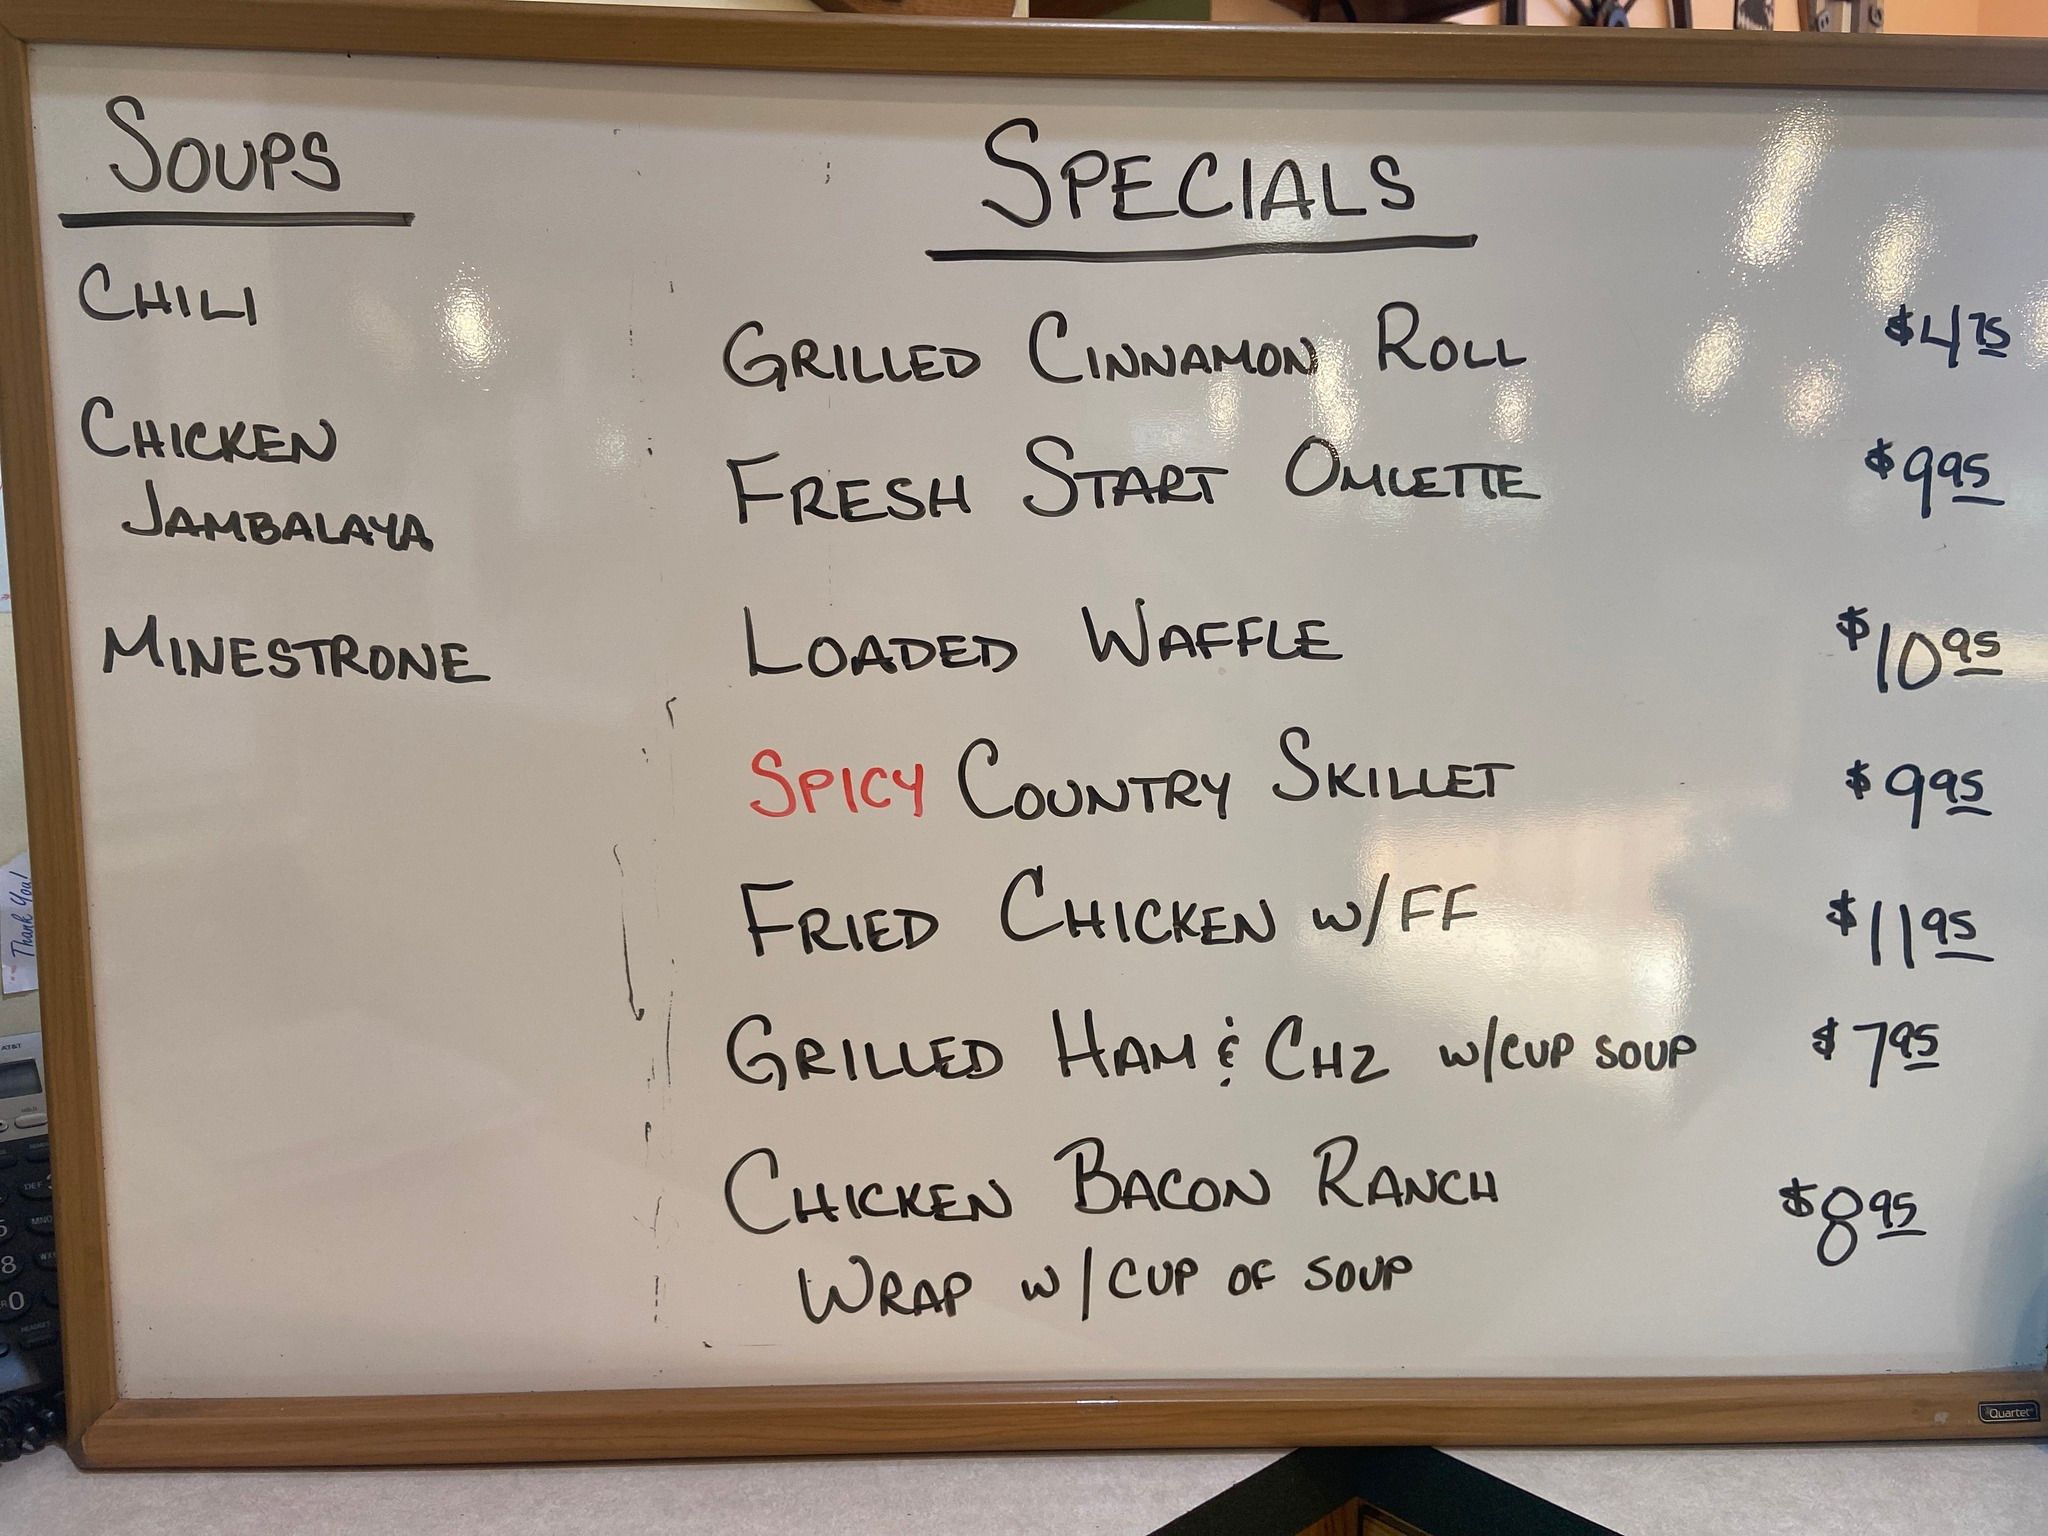 SOUPS
CHILI
CHICKEN
JAMBALAYA
MINESTRONE
SPECIALS
GRILLED CINNAMON ROLL $4.75
FRESH START OMLETTE $9.95
LOADED WAFFLE $10.95
SPICY COUNTRY SKILLET $9.95
FRIED CHICKEN W/FF $11.95
GRILLED HAM & CHZ W/CUP SOUP $7.95
CHICKEN BACON RANCH $8.95
WRAP W/CUP OF SOUP
Thank You!
AT&T
HOLD
DEF
MNO
8
0
HEADSET
Quartet